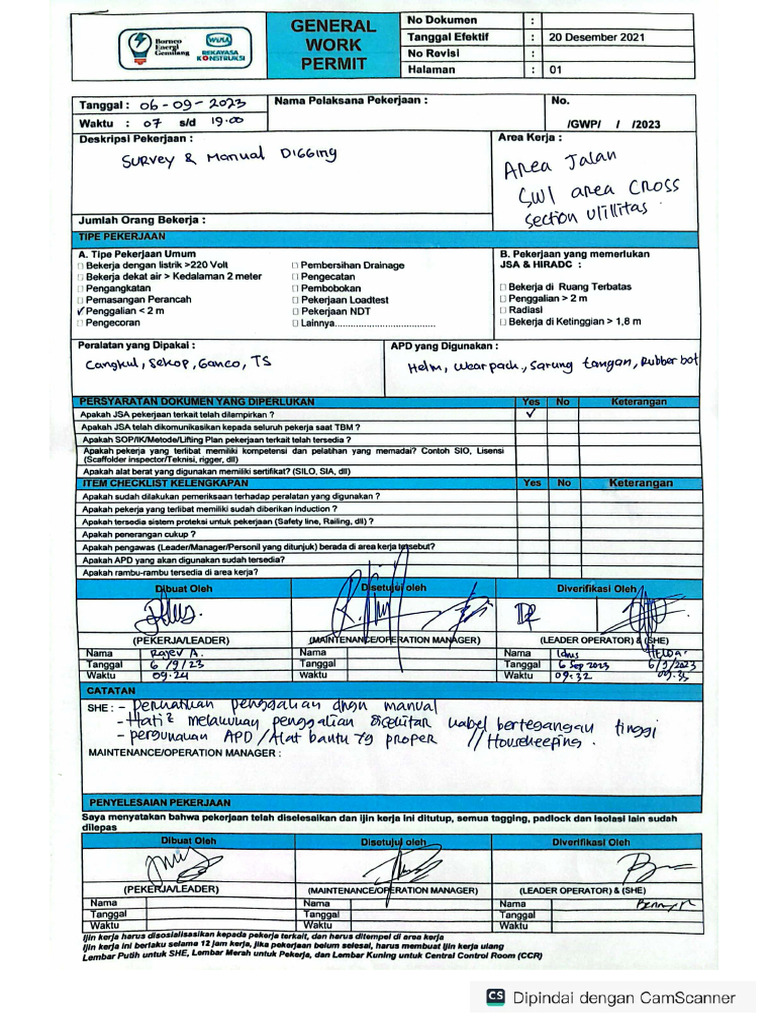 Borneo Energi Gemilang
WIKA REKAYASA KONSTRUKSI
GENERAL WORK PERMIT
No Dokumen :
Tanggal Efektif : 20 Desember 2021
No Revisi :
Halaman : 01
Tanggal : 06-09-2023
Waktu : 07 s/d 19.00
Nama Pelaksana Pekerjaan :
No.
/GWP/ / /2023
Deskripsi Pekerjaan :
Survey & Manual Digging
Area Kerja :
Area Jalan
SWI area Cross
Section Utilitas
Jumlah Orang Bekerja :
TIPE PEKERJAAN
A. Tipe Pekerjaan Umum
Bekerja dengan listrik >220 Volt
Bekerja dekat air > Kedalaman 2 meter
Pengangkatan
Pemasangan Perancah
✓ Penggalian < 2 m
Pengecoran
Pembersihan Drainage
Pengecatan
Pembobokan
Pekerjaan Loadtest
Pekerjaan NDT
Lainnya....................................
B. Pekerjaan yang memerlukan
JSA & HIRADC :
Bekerja di Ruang Terbatas
Penggalian > 2 m
Radiasi
Bekerja di Ketinggian > 1,8 m
Peralatan yang Dipakai :
Cangkul, Sekop, Ganco, TS
APD yang Digunakan :
Helm, Wearpack, Sarung tangan, Rubber bot
PERSYARATAN DOKUMEN YANG DIPERLUKAN Yes No Keterangan
Apakah JSA pekerjaan terkait telah dilampirkan ? ✓
Apakah JSA telah dikomunikasikan kepada seluruh pekerja saat TBM ?
Apakah SOP/IK/Metode/Lifting Plan pekerjaan terkait telah tersedia ?
Apakah pekerja yang terlibat memiliki kompetensi dan pelatihan yang memadai? Contoh SIO, Lisensi
(Scaffolder inspector/Teknisi, rigger, dll)
Apakah alat berat yang digunakan memiliki sertifikat? (SILO, SIA, dll)
ITEM CHECKLIST KELENGKAPAN Yes No Keterangan
Apakah sudah dilakukan pemeriksaan terhadap peralatan yang digunakan ?
Apakah pekerja yang terlibat memiliki sudah diberikan induction ?
Apakah tersedia sistem proteksi untuk pekerjaan (Safety line, Railing, dll) ?
Apakah penerangan cukup ?
Apakah pengawas (Leader/Manager/Personil yang ditunjuk) berada di area kerja tersebut?
Apakah APD yang akan digunakan sudah tersedia?
Apakah rambu-rambu tersedia di area kerja?
Dibuat Oleh Disetujui oleh Diverifikasi Oleh
(PEKERJA/LEADER) (MAINTENANCE/OPERATION MANAGER) (LEADER OPERATOR) & (SHE)
Nama Rajev A. Nama Nama Idrus HELDA
Tanggal 6/9/23 Tanggal Tanggal 6 Sep 2023 6/9/2023
Waktu 09.24 Waktu Waktu 09.32 09.35
CATATAN
SHE : - Perhatikan penggalian dngn manual
- Hati² melakukan penggalian disekitar kabel bertegangan tinggi
- pergunakan APD/Alat bantu yg proper // Housekeeping.
MAINTENANCE/OPERATION MANAGER :
PENYELESAIAN PEKERJAAN
Saya menyatakan bahwa pekerjaan telah diselesaikan dan ijin kerja ini ditutup, semua tagging, padlock dan isolasi lain sudah
dilepas
Dibuat Oleh Disetujui oleh Diverifikasi Oleh
(PEKERJA/LEADER) (MAINTENANCE/OPERATION MANAGER) (LEADER OPERATOR) & (SHE)
Nama Nama Nama
Tanggal Tanggal Tanggal
Waktu Waktu Waktu
Ijin kerja harus disosialisasikan kepada pekerja terkait, dan harus ditempel di area kerja
Ijin kerja ini berlaku selama 12 jam kerja, jika pekerjaan belum selesai, harus membuat ijin kerja ulang
Lembar Putih untuk SHE, Lembar Merah untuk Pekerja, dan Lembar Kuning untuk Central Control Room (CCR)
CS Dipindai dengan CamScanner